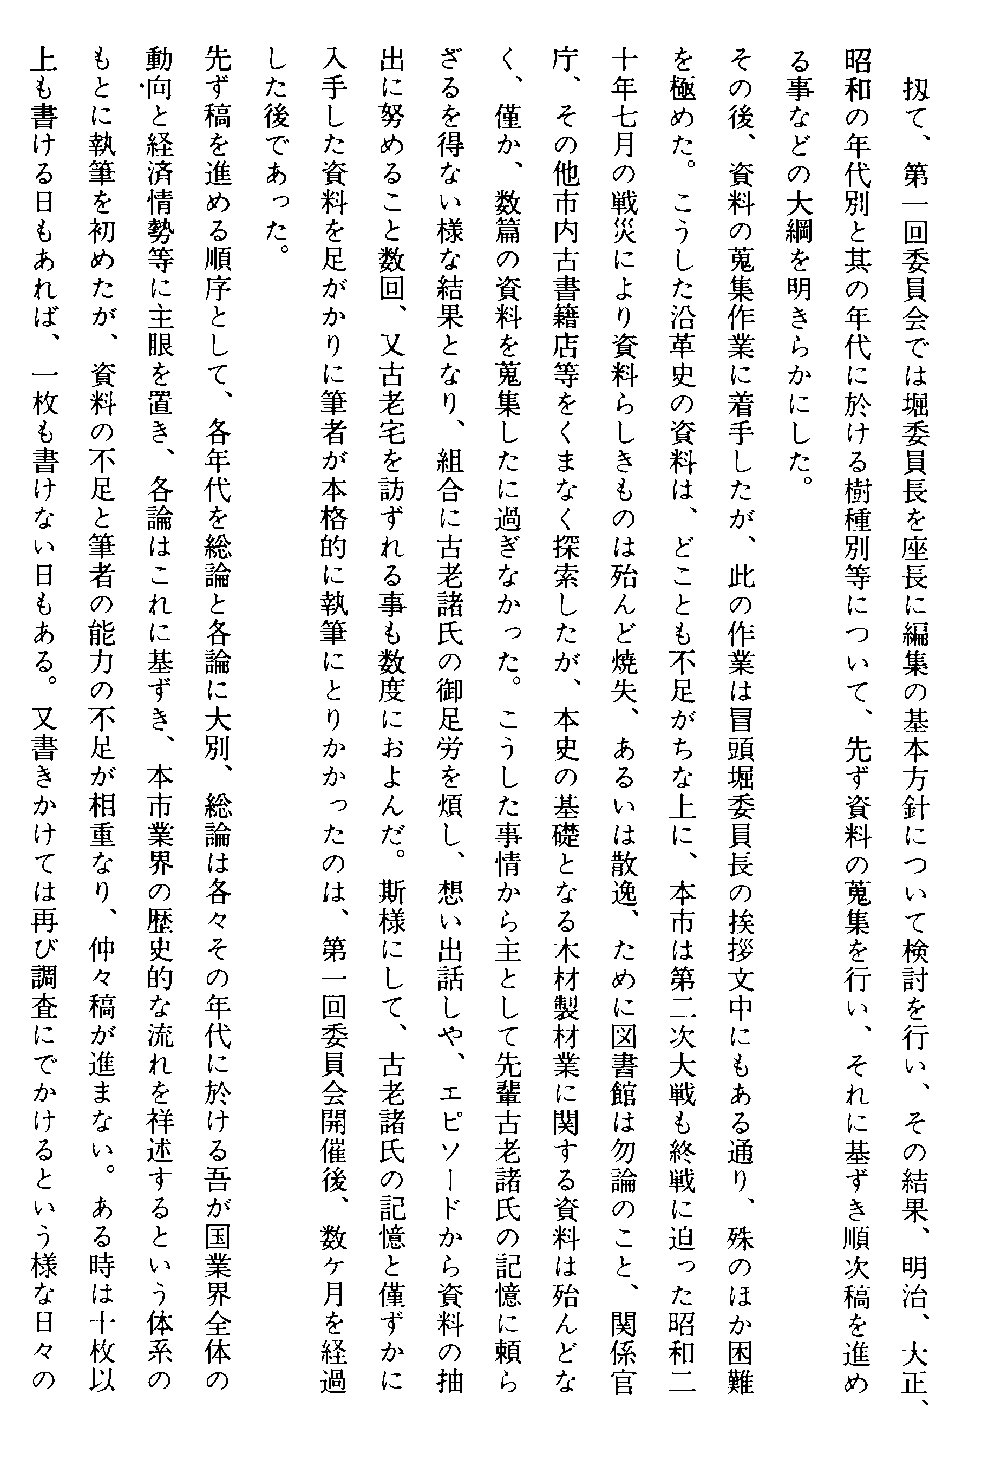 扨て、第一回委員会では堀委員長を座長に編集の基本方針について検討を行い、その結果、明治、大正、
昭和の年代別と其の年代に於ける樹種別等について、先ず資料の蒐集を行い、それに基ずき順次稿を進め
る事などの大綱を明きらかにした。
その後、資料の蒐集作業に着手したが、此の作業は冒頭堀委員長の挨拶文中にもある通り、殊のほか困難
を極めた。こうした沿革史の資料は、どことも不足がちな上に、本市は第二次大戦も終戦に迫った昭和二
十年七月の戦災により資料らしきものは殆んど焼失、あるいは散逸、ために図書館は勿論のこと、関係官
庁、その他市内古書籍店等をくまなく探索したが、本史の基礎となる木材製材業に関する資料は殆んどな
く、僅か、数篇の資料を蒐集したに過ぎなかった。こうした事情から主として先輩古老諸氏の記憶に頼ら
ざるを得ない様な結果となり、組合に古老諸氏の御足労を煩し、想い出話しや、エピソードから資料の抽
出に努めること数回、又古老宅を訪ずれる事も数度におよんだ。斯様にして、古老諸氏の記憶と僅ずかに
入手した資料を足がかりに筆者が本格的に執筆にとりかかったのは、第一回委員会開催後、数ヶ月を経過
した後であった。
先ず稿を進める順序として、各年代を総論と各論に大別、総論は各々その年代に於ける吾が国業界全体の
動向と経済情勢等に主眼を置き、各論はこれに基ずき、本市業界の歴史的な流れを祥述するという体系の
もとに執筆を初めたが、資料の不足と筆者の能力の不足が相重なり、仲々稿が進まない。ある時は十枚以
上も書ける日もあれば、一枚も書けない日もある。又書きかけては再び調査にでかけるという様な日々の